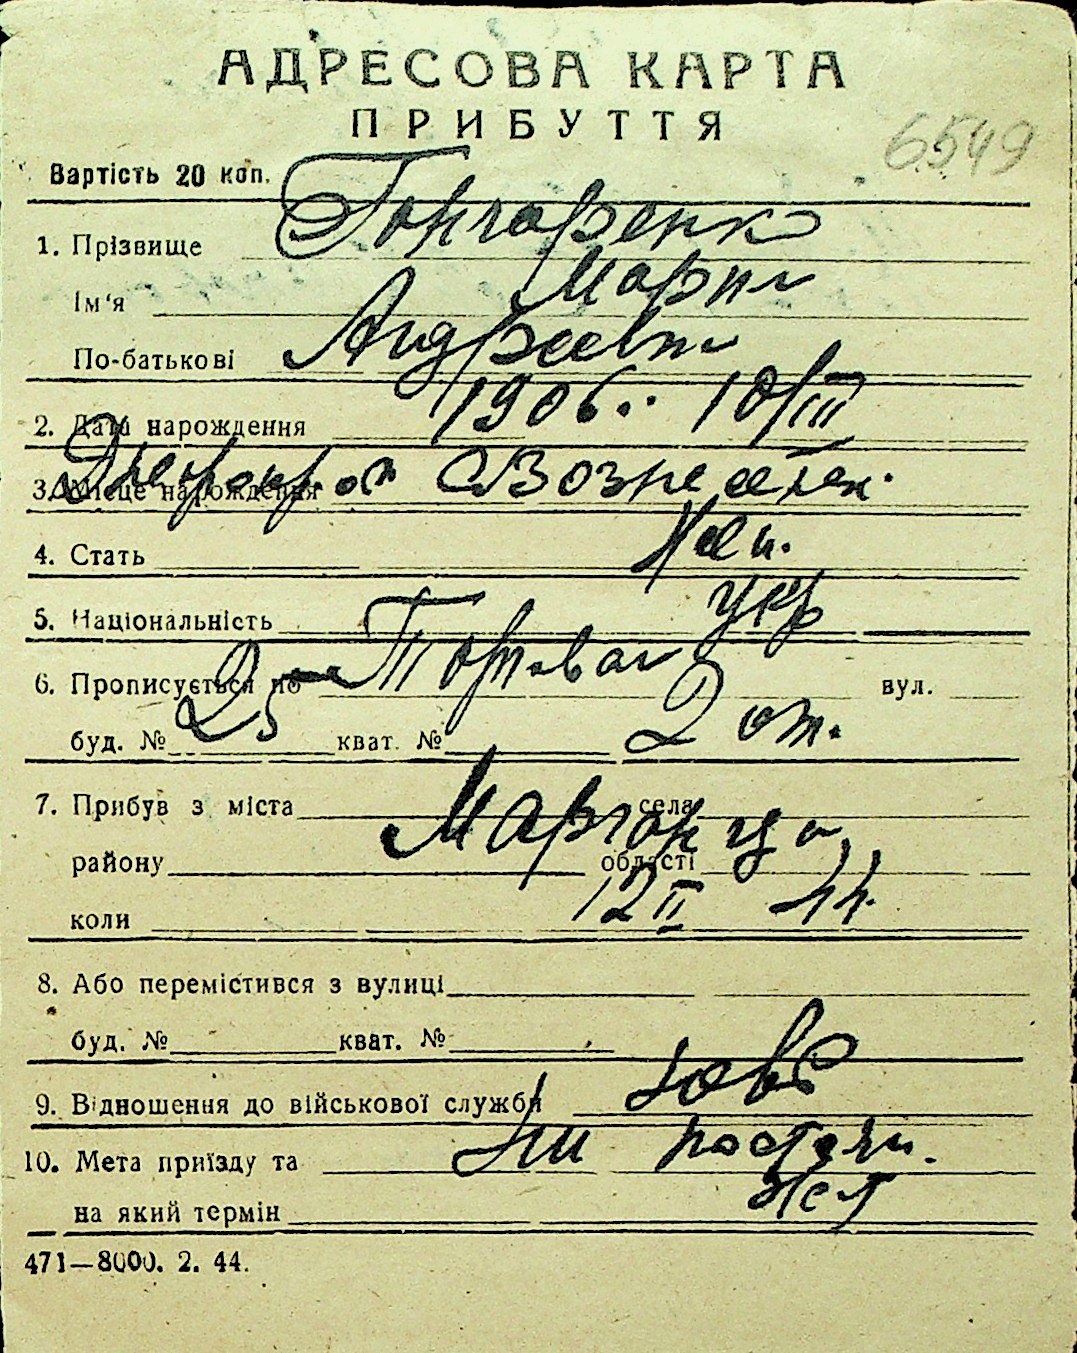 АДРЕСОВА КАРТА
ПРИБУТТЯ
6549
Вартість 20 коп.
1. Прізвище Гончаренко
Ім'я Мария
По-батькові Андреевна
2. Дата нарождення 1906.. 10/III
3. Місце нарождення
4. Стать жен.
5. Національність укр
6. Прописується по вул.
буд. № 25 кват. № 2 от.
7. Прибув з міста села
району области Марганца
коли 12 II 44.
8. Або перемістився з вулиці
буд. № кват. №
9. Відношення до військової служби
10. Мета приїзду та
на який термін
471—8000. 2. 44.